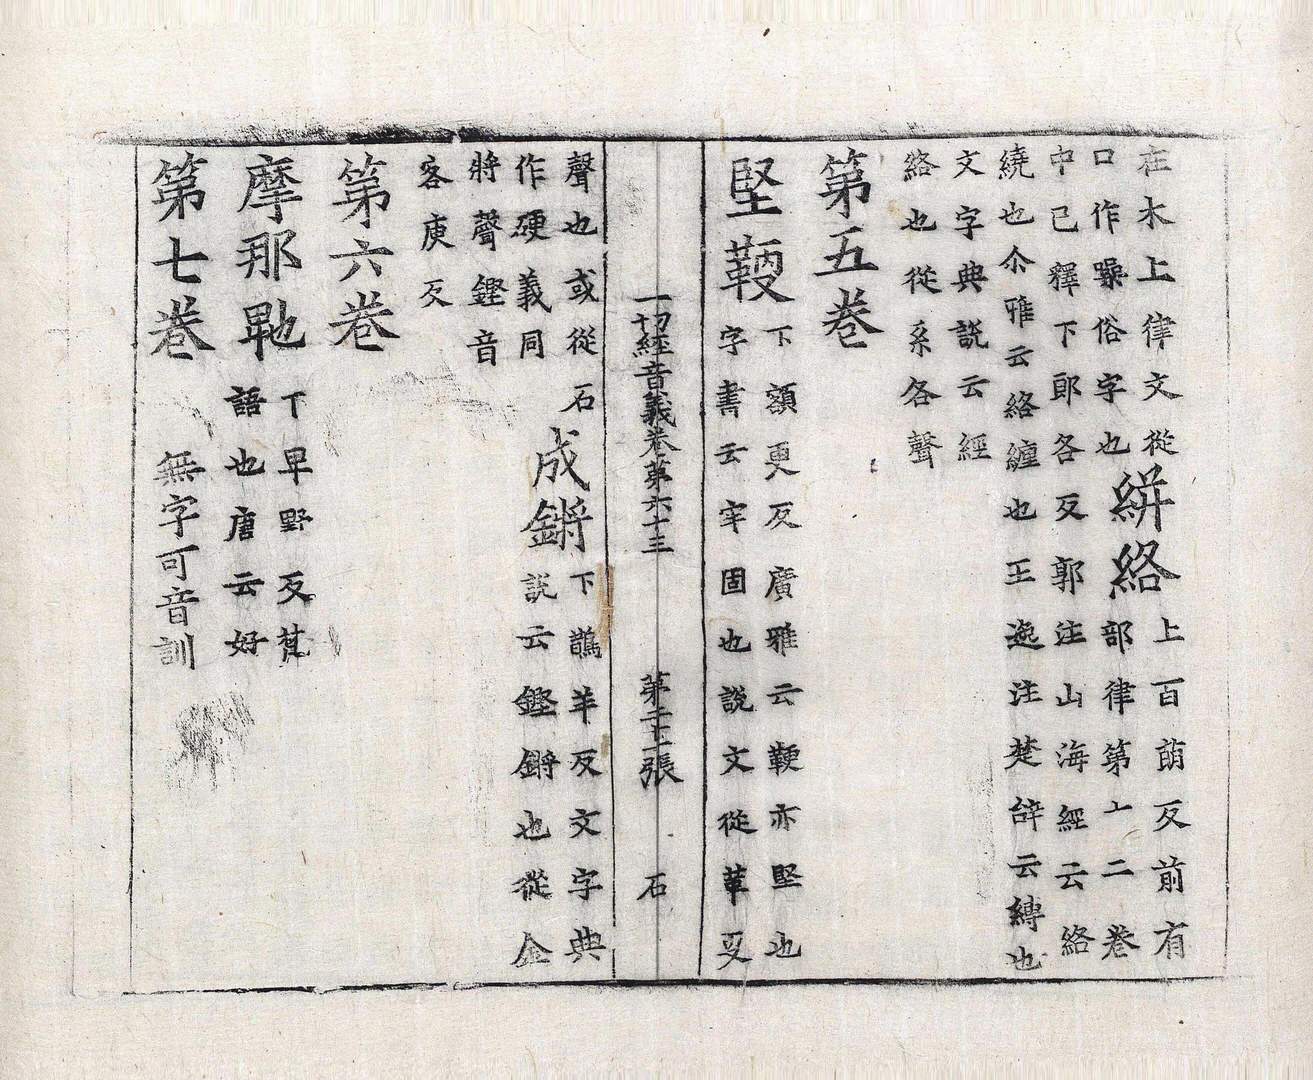 在木上律文從
口作躁俗字也
絣絡
上百萠反前有
部律第十二卷
中已釋下郎各反郭注山海經云絡
繞也尒雅云絡纏也王逸注楚辝云縛也
文字典說云經
絡也從系各聲
第五卷
堅鞕
下額更反廣雅云鞕亦堅也
字書云牢固也說文從革㪅
一切經音義卷第六十三 第二十二張 石
聲也或從石
作硬義同
成鏘
下鵲羊反文字典
說云鏗鏘也從金
將聲鏗音
客庚反
第六卷
摩那𭻾
丅早野反梵
語也唐云好
第七卷
無字可音訓